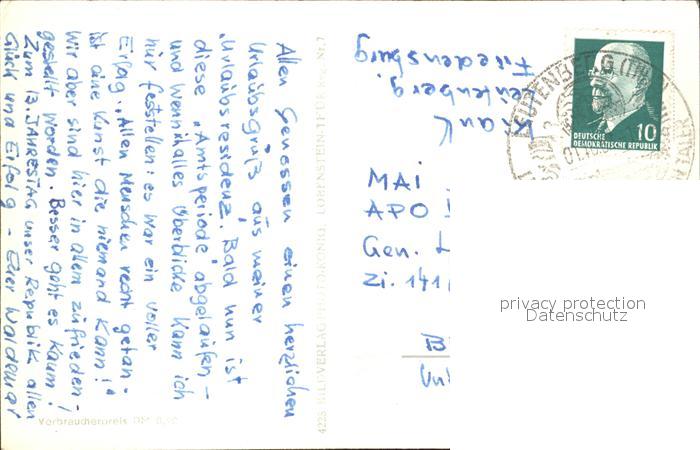 Allen Genossen einen herzlichen
Urlaubsgruß aus meiner
"Urlaubsresidenz". Bald nun ist
diese "Amtsperiode" abgelaufen –
und wenn ich alles überblicke kann ich
nur feststellen: es war ein voller
Erfolg. "Allen Menschen recht getan –
ist eine Kunst die niemand kann!"
Wir aber sind hier in allem zufrieden-
gestellt worden. Besser geht es kaum!
Zum 13. JAHRESTAG unser Republik allen
Glück und Erfolg – Euer Waldemar
Verbraucherpreis DM
4228 BILDVERLAG PHOTO-KÖNIG, LOBENSTEIN
Leutenberg.
Friedensburg
DEUTSCHE
DEMOKRATISCHE REPUBLIK
10
LEUTENBERG (THÜR
MAI
APO
Gen.
Zi. 141
privacy protection
Datenschutz